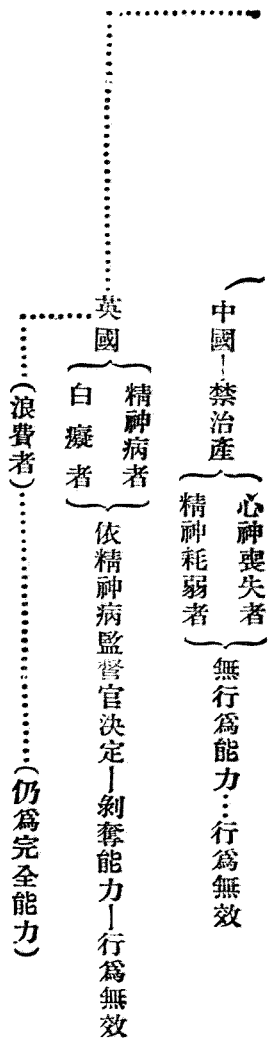 中國—禁治產
心神喪失者
精神耗弱者
無行爲能力…行爲無效
英國
精神病者
白癡者
依精神病監督官決定—剝奪能力—行爲無效
(浪費者)…………(仍爲完全能力)